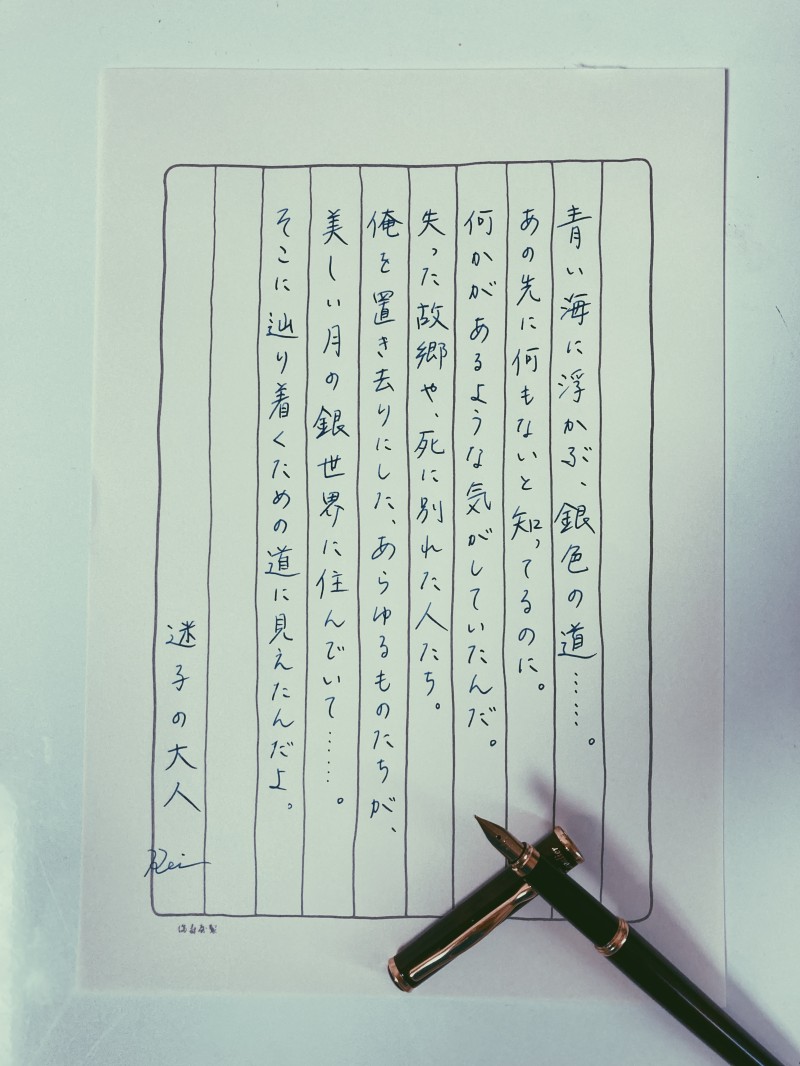 青い海に浮かぶ、銀色の道……。
あの先に何もないと知ってるのに。
何かがあるような気がしていたんだ。
失った故郷や、死に別れた人たち。
俺を置き去りにした、あらゆるものたちが、
美しい月の銀世界に住んでいて……。
そこに辿り着くための道に見えたんだよ。
迷子の大人
Rei